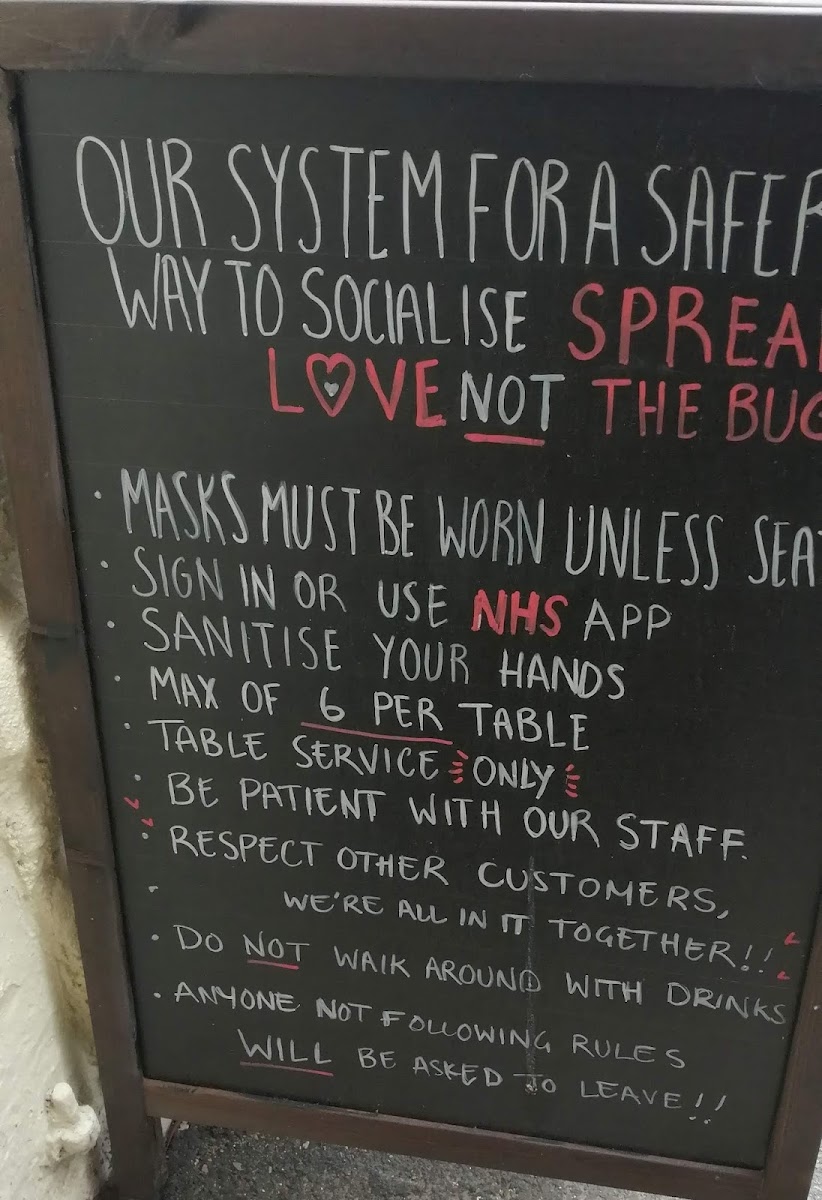 OUR SYSTEM FOR A SAFER
WAY TO SOCIALISE SPREA
LOVE NOT THE BUG
· MASKS MUST BE WORN UNLESS SEA
· SIGN IN OR USE NHS APP
· SANITISE YOUR HANDS
· MAX OF 6 PER TABLE
· TABLE SERVICE ONLY
· BE PATIENT WITH OUR STAFF.
· RESPECT OTHER CUSTOMERS,
WE'RE ALL IN IT TOGETHER!!
· DO NOT WALK AROUND WITH DRINKS
· ANYONE NOT FOLLOWING RULES
WILL BE ASKED TO LEAVE!!